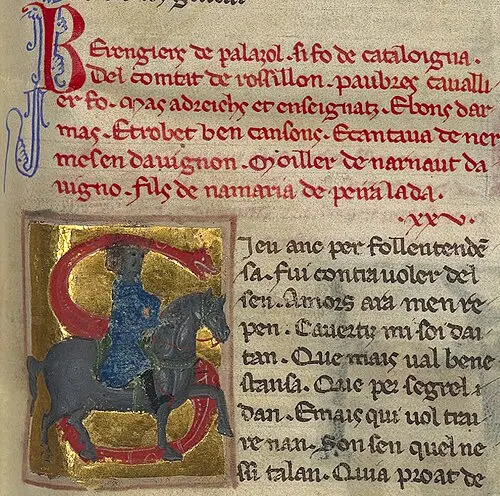 Berengiers de palazol. si fo de cataloigna.
Del comtat de rossillon. paubres cavalli
er fo. Mas adreichs et enseignatz. E bons dar
mas. Et trobet ben cansons. E cantava de ner
mesen davignon. Moiller de narnaut da
vigno. fils de namaria de peiralada.
.xxv.
Sieu anc per fol lentendẽ
sa. fui contra voler del
sen. Amors ara men re
pen. Cavertz mi soi dai
tan. Que mais val bene
stansa. Que per segrel
dan. E mais qui vol trai
re nan. Son sen quel ne
talan. Quia proat de